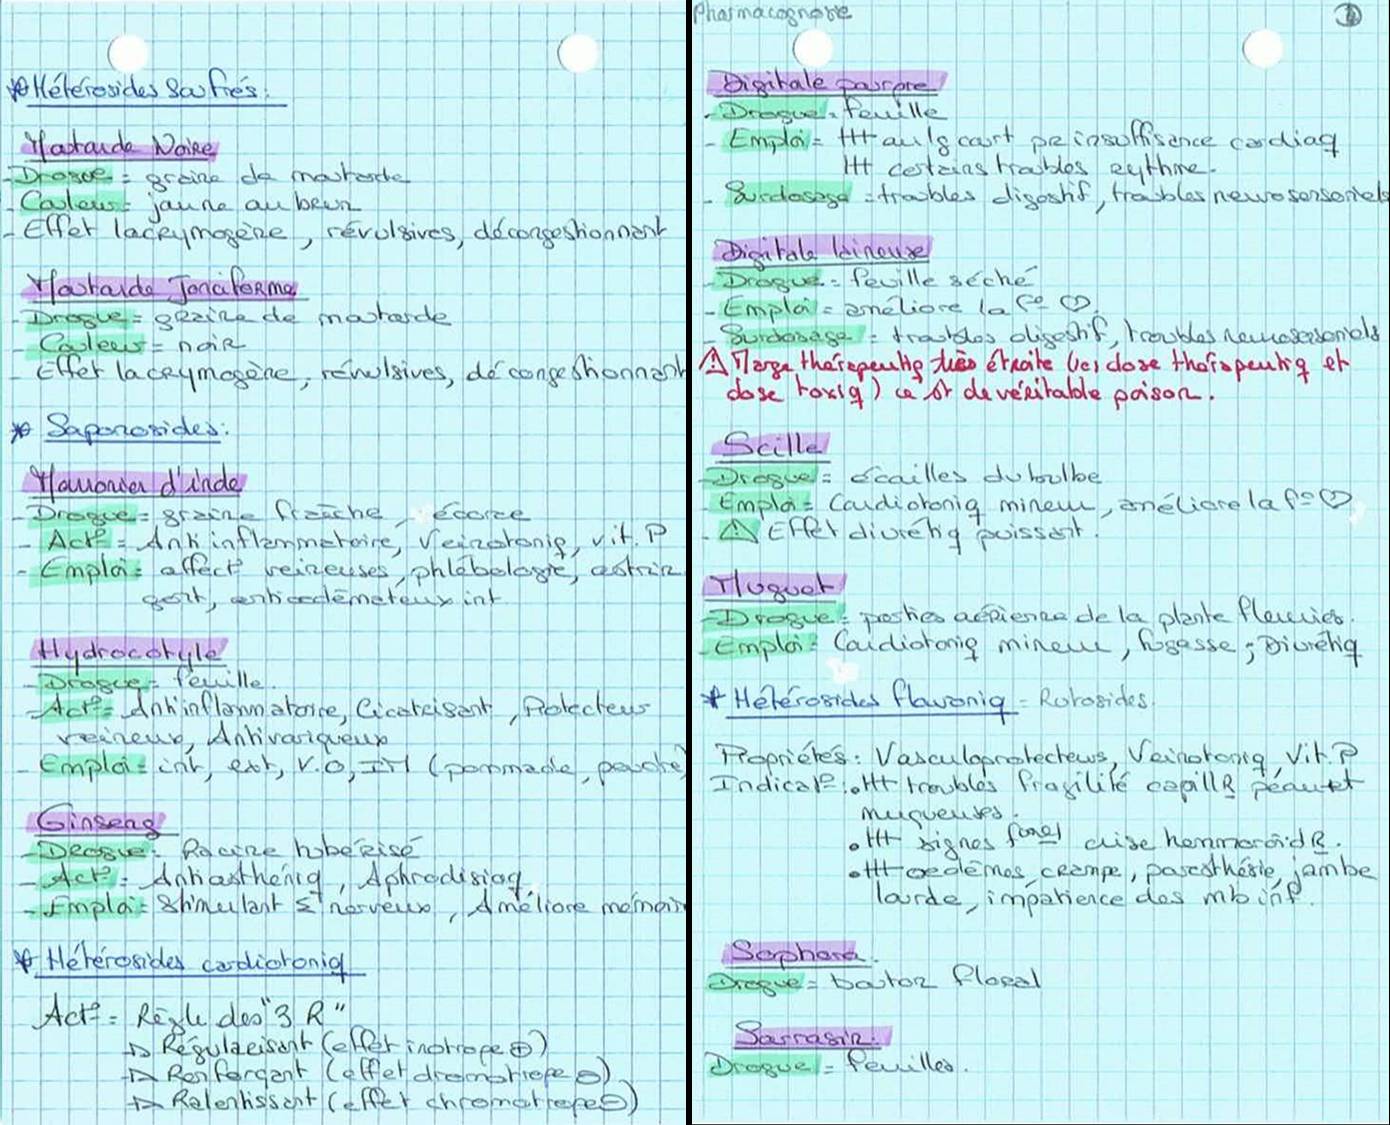 * Hétérosides Soufrés :
Moutarde Noire
- Drogue = graine de moutarde
- Couleur = jaune au brun
- Effet lacrymogène, révulsives, décongestionnant
Moutarde Jonciforme
- Drogue = graine de moutarde
- Couleur = noir
- Effet lacrymogène, révulsives, décongestionnant
* Saponosides :
Marronier d'inde
- Drogue = graine fraîche, écorce
- Act° = Anti inflammatoire, Veinotoniq, vit. P
- Emploi = affect° veineuses, phlébologie, astrin
gent, antioedémateux int
Hydrocotyle
- Drogue = feuille.
- Act° = Antiinflammatoire, Cicatrisant, Protecteur
veineux, Antivariqueux
- Emploi = int, ext, V.O, IM (pommade, poudre)
Ginseng
- Drogue = Racine tubérisé
- Act° = Antiasthéniq, Aphrodisiaq.
- Emploi = Stimulant Σ nerveux, Améliore mémoire
* Hétérosides cardiotoniq
Act° = Règle des "3 R"
→ Régularisant (effet inotrope ⊕)
→ Renforçant (effet dromotrope ⊖)
→ Ralentissant (effet chromotrope ⊖)
Pharmacognosie
Digitale pourpre
- Drogue = feuille
- Emploi = ttt au lg court pr insuffisance cardiaq
ttt certains troubles rythme.
- Surdosage = troubles digestif, troubles neurosensoriels
Digitale laineuse
- Drogue = feuille séché
- Emploi = améliore la f° ♡.
- Surdosage = troubles digestif, troubles neurosensoriels
⚠ Marge thérapeutiq très étroite (ie) dose thérapeutiq et
dose toxiq) ce st de véritable poison.
Scille
- Drogue = écailles du bulbe
- Emploi = Cardiotoniq mineur, améliore la f° ♡
- ⚠ Effet diurétiq puissant.
Muguet
- Drogue = parties aérienne de la plante fleuries.
- Emploi = Cardiotoniq mineur, fugasse ; Diurétiq
* Hétérosides flavoniq = Rutosides.
Propriétés : Vasculoprotecteurs, Veinotoniq, Vit. P
Indicat° : • ttt troubles fragilité capillR peau et
muqueuses.
• ttt signes fonel crise hemmoroïdR.
• ttt oedèmes, crampe, paresthésie, jambe
lourde, impatience des mb inf.
Sophora.
Drogue = bouton floral
Sarrasin.
Drogue = feuilles.